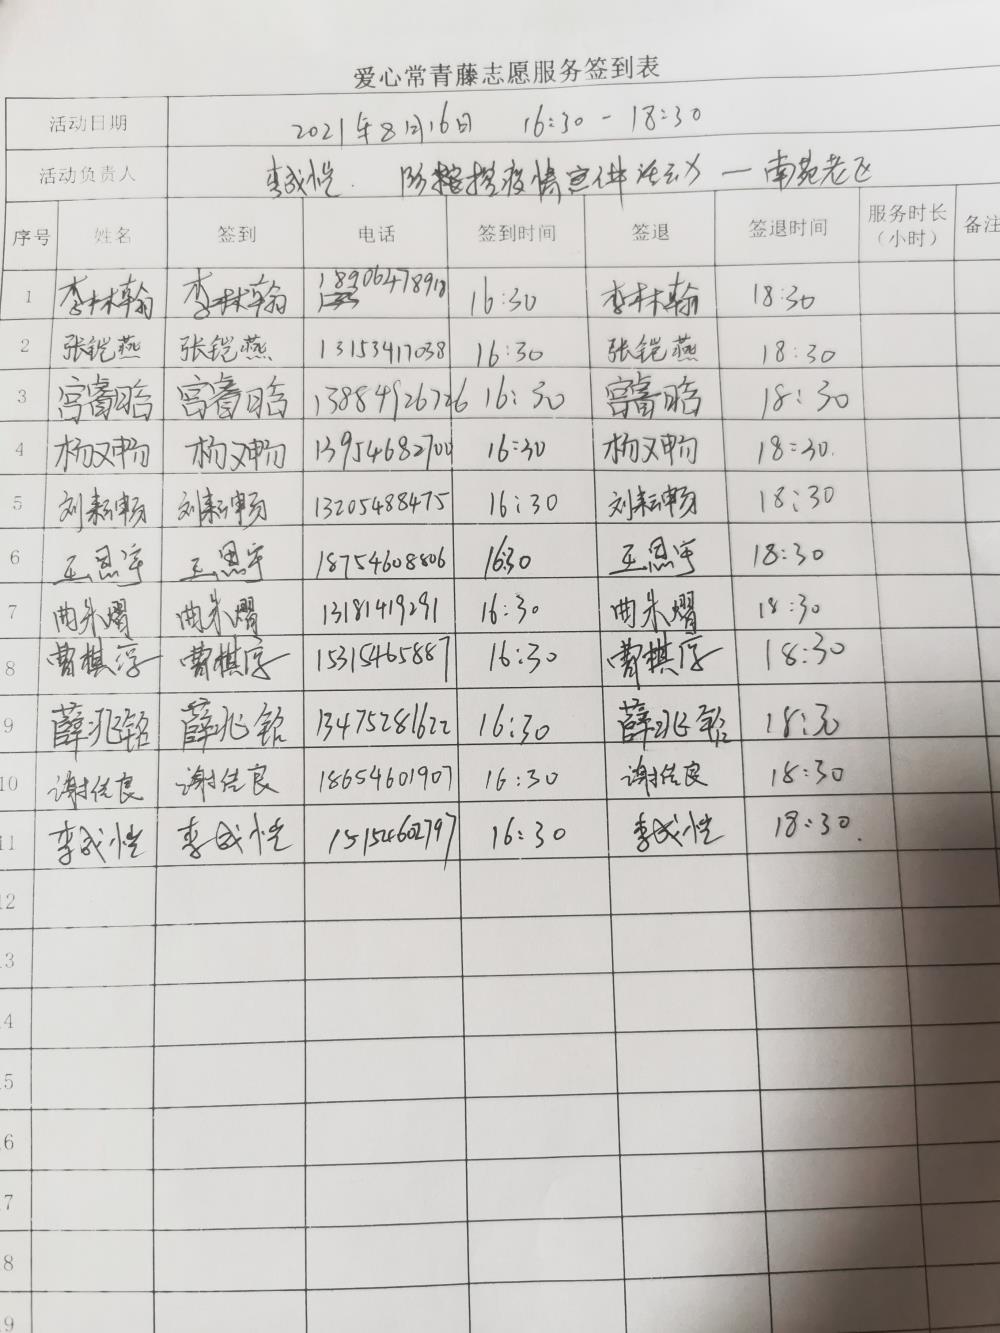 爱心常青藤志愿服务签到表
活动日期 2021年8月16日 16:30-18:30
活动负责人 李成恺. 疫情宣传活动—南苑老区
序号 姓名 签到 电话 签到时间 签退 签退时间 服务时长（小时） 备注
1 李林翰 李林翰 18906478918 16:30 李林翰 18:30
2 张铠燕 张铠燕 13153417038 16:30 张铠燕 18:30
3 宫睿晗 宫睿晗 13884926726 16:30 宫睿晗 18:30
4 杨又畅 杨又畅 13954682700 16:30 杨又畅 18:30.
5 刘耘畅 刘耘畅 13205488475 16:30 刘耘畅 18:30
6 王恩宇 王恩宇 18754608806 1630 王恩宇 18:30
7 曲朱熠 曲朱熠 13181419291 16:30 曲朱熠 18:30
8 曹棋淳 曹棋淳 15315465887 16:30 曹棋淳 18:30
9 薛兆铭 薛兆铭 13475281622 16:30 薛兆铭 18:30
10 谢佳良 谢佳良 18654601907 16:30 谢佳良 18:30
11 李成恺 李成恺 15154602797 16:30 李成恺 18:30.
12
3
4
5
6
7
8
9